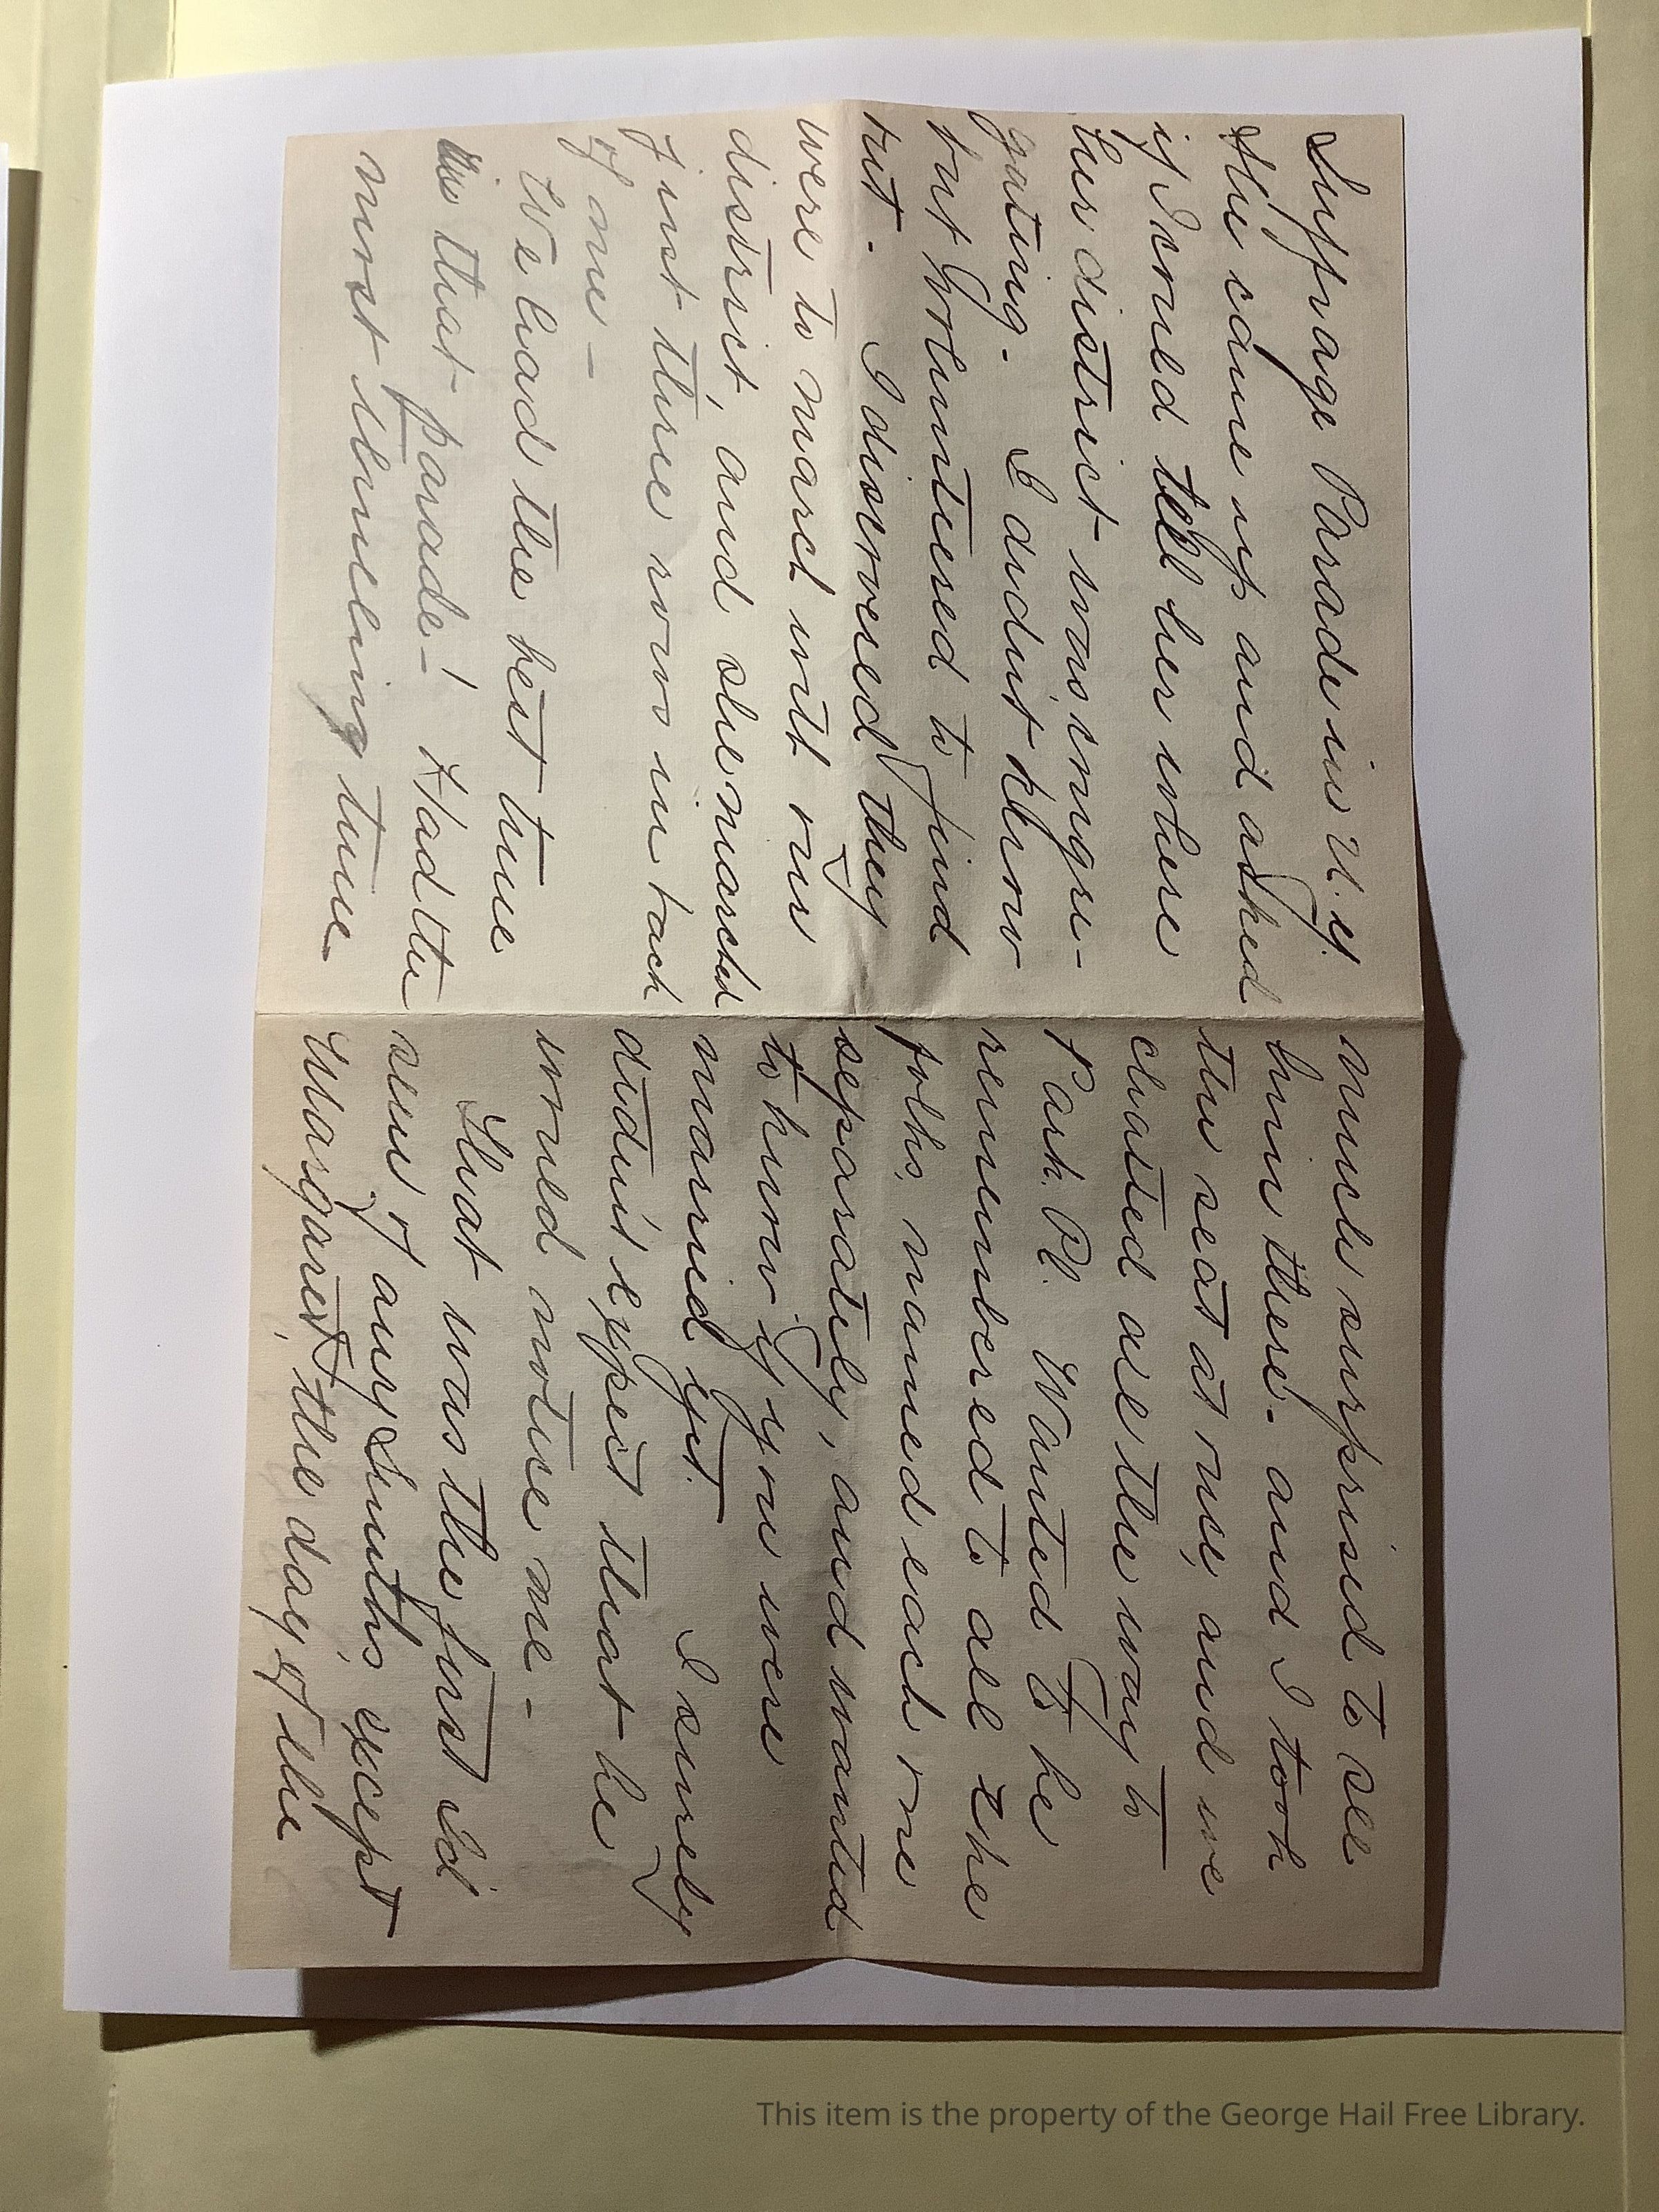 much surprised to see
him there - and I took
the seat at once, and we
chatted all the way to
Park Pl. Wanted to be
remembered to all the
folks, named each one
separately, and wanted
to know if you were
married yet. I surely
didn't expect that he
would notice me -
That was the first I'd
seen of any Smiths, except
Margaret, the day of the
Suffrage Parade in N.Y.
She came up and asked
if I could tell her where
her district was congre-
gating. I didn't know
but volunteered to find
out. I discovered they
were to march with our
district, and she marched
just three rows in back
of me -
We had the best time
in that parade! Had the
most thrilling time
This item is the property of the George Hail Free Library.